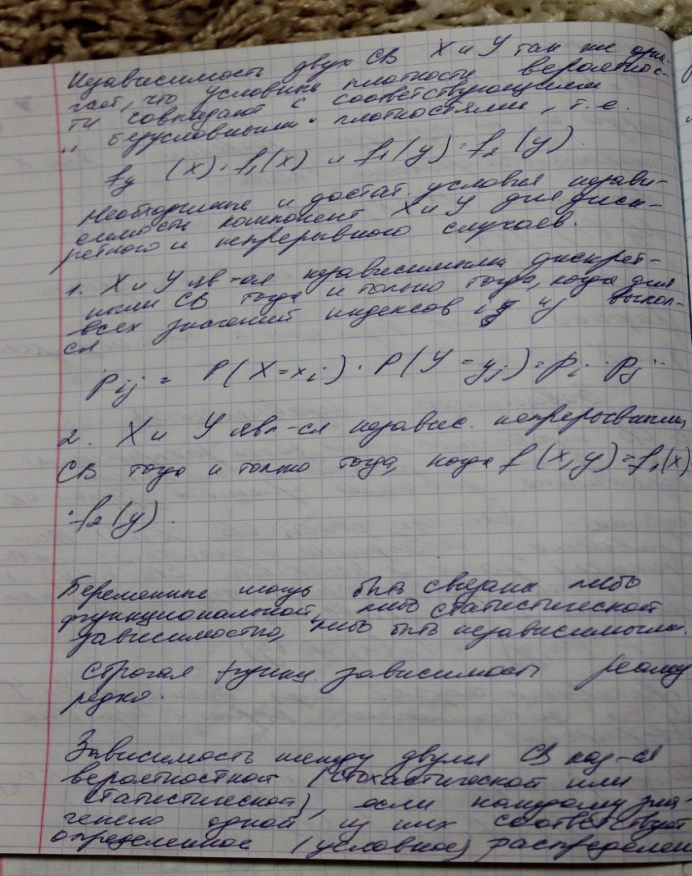 Независимость двух СВ X и Y так же озна-
чает, что условные плотности вероятнос-
ти совпадают с соответствующими
"безусловными" плотностями, т.е.
fy (x) = f₁(x) и f₁(y) = f₂(y)
Необходимые и достат. условия незави-
симость компонент X и Y для диск-
ретного и непрерывного случаев.
1. X и Y яв-ся независимыми дискрет-
ными СВ тогда и только тогда, когда для
всех значений индексов i и j выпол-
ся
Pij = P(X=xi) · P(Y=yj) = pi · pj
2. X и Y явл-ся независ. непрерывными
СВ тогда и только тогда, когда f(x,y)=f₁(x)
·f₂(y).
Переменные могут быть связаны либо
функциональной, либо статистической
зависимостью, либо быть независимыми.
Строгая функц. зависимость
редко.
Зависимость между двумя СВ наз-ся
вероятностной (стохастической или
статистической), если каждому зна-
чению одной из них соответствует
определенное (условное) распределен